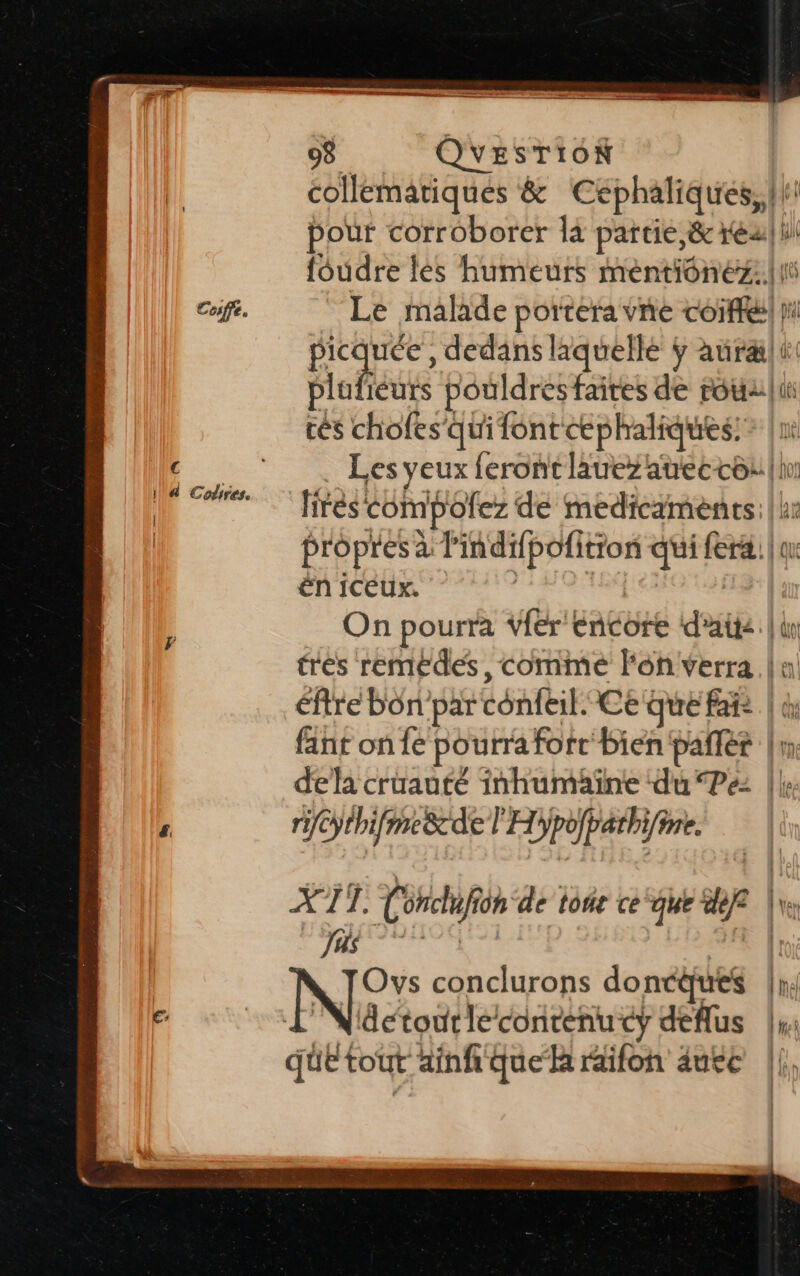 98 QVESTION
collematiques & Cephaliques,
pour corroborer la partie, & re-
ſoudre les humeurs mentionéz.
Coiffe.
Le malade portera vne coiffe
picquée, dedans laquelle y aura
pluſieurs pouldres faites de tou-
tes choſes qui ſont cephaliques.
Les yeux ſeront lauez auec co-
Colires.
lires compoſez de medicaments
propres à l'indiſpoſition qui ſera
en iceux.
On pourra vſer encore d'au-
tres remedes, comme l'on verra
eſtre bon par conſeil. Ce que fai-
ſant on ſe pourra fort bien paſſer
de la cruauté inhumaine du Pe-
riſcythiſme & de l'Hypoſpathiſme.
XII. Concluſion de tout ce que deſ-
ſus
NOvs conclurons doncques
de tout le contenu cy deſſus
que tout ainſi que la raiſon auec